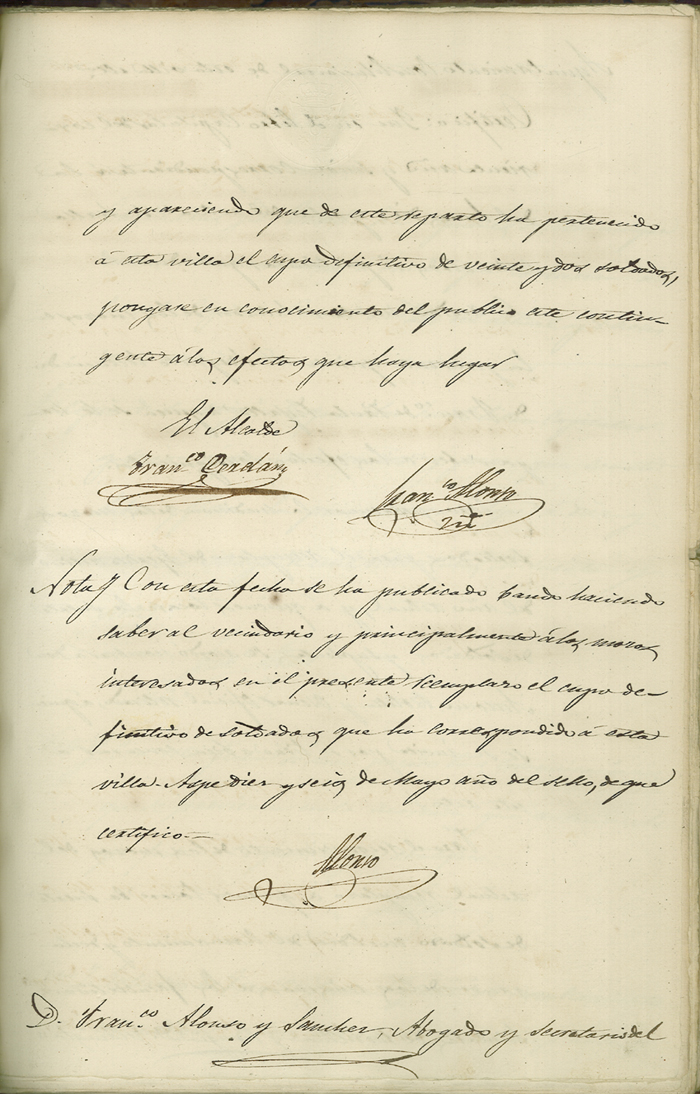 y apareciendo que de este reparto ha pertenecido
á esta villa el cupo definitivo de veinte y dos soldados,
pongase en conocimiento del publico este contin-
gente á los efectos que haya lugar
El Alcalde
Fran.co Cerdán
Fran.co Alonso
Nota Con esta fecha se ha publicado bando haciendo
saber al vecindario y principalmente á los mozos
interesados en el presente reemplazo el cupo de-
finitivo de soldados que ha correspondido á esta
villa. Aspe diez y seis de Mayo año del sello, de que
certifico.—
Alonso
D. Fran.co Alonso y Sanchez, Abogado y secretario del